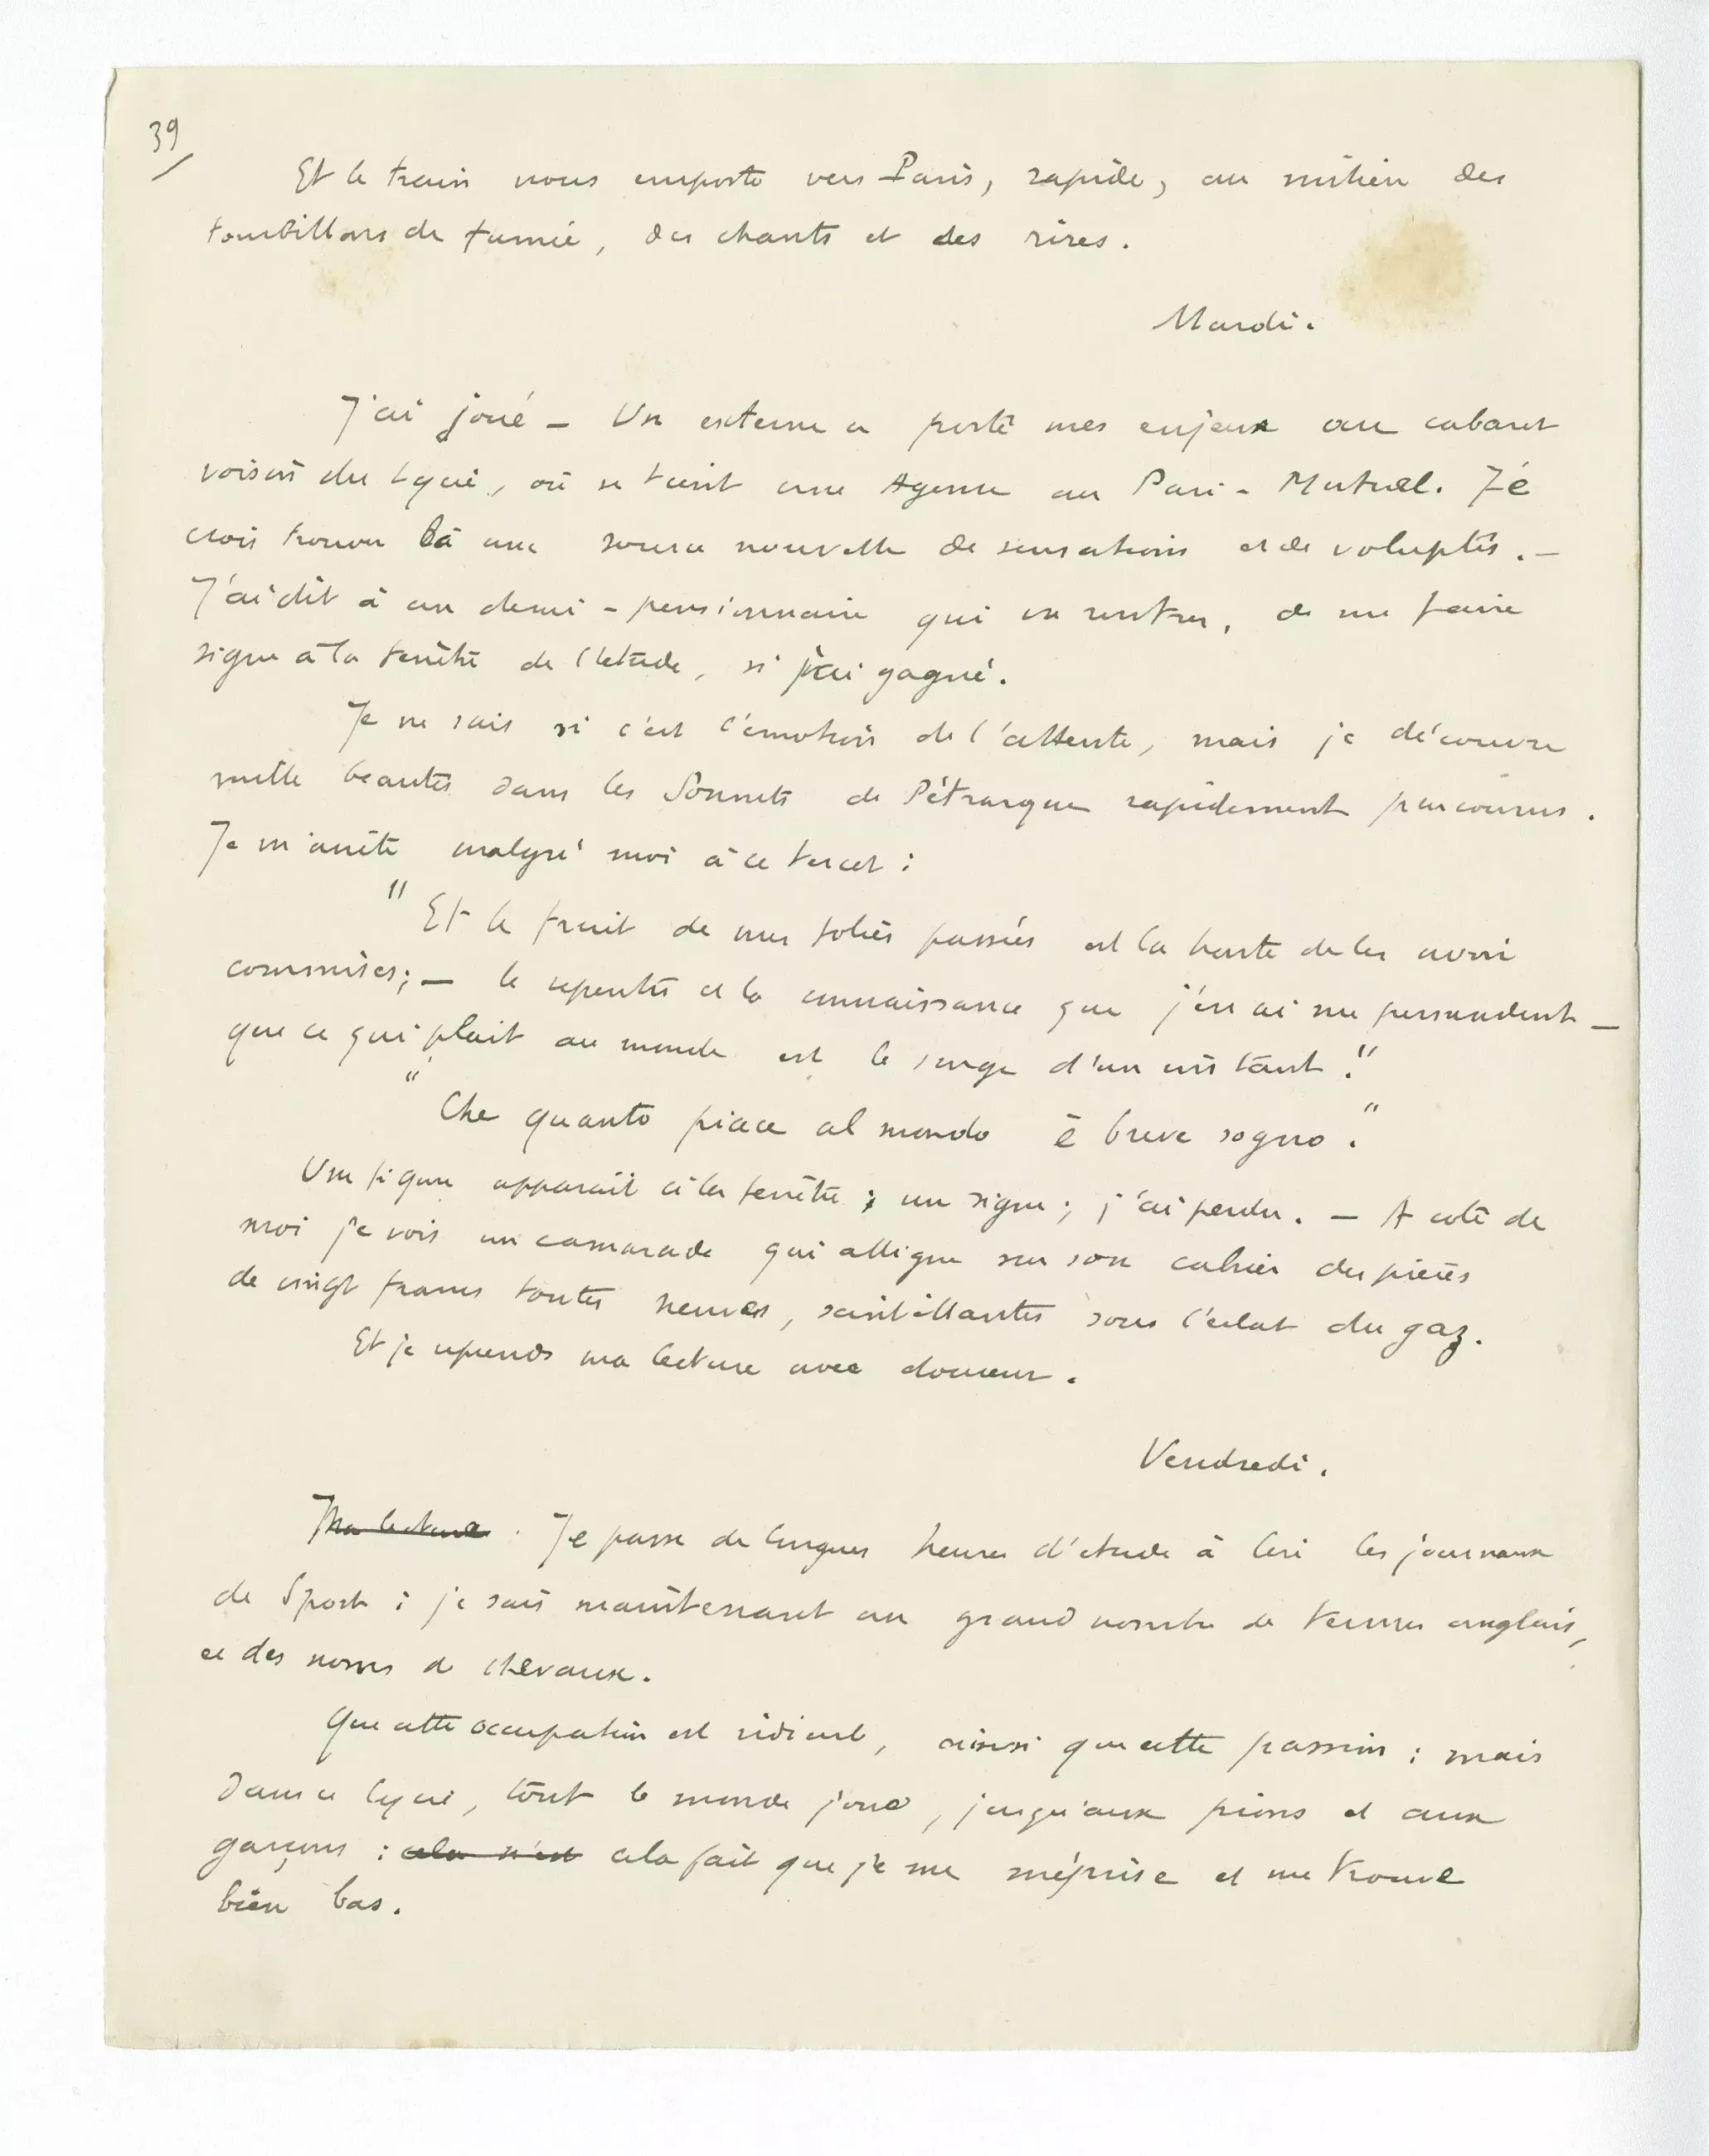 39
Et le train nous emporte vers Paris, rapide, au milieu des
tourbillons de fumée, des chants et des rires.
Mardi.
J'ai joué – Un externe a porté mes enjeux au cabaret
voisin du Lycée, où se tient une Agence au Pari-Mutuel. Je
crois trouver là une source nouvelle de sensations et de voluptés. –
J'ai dit à un demi-pensionnaire qui va rentrer, de me faire
signe à la fenêtre de l'étude, si j'ai gagné.
Je ne sais si c'est l'émotion de l'attente, mais je découvre
mille beautés dans les Sonnets de Pétrarque rapidement parcourus.
Je m'arrête malgré moi à ce tercet :
" Et le fruit de mes folies passées est la honte de les avoir
commises; – le repentir et la connaissance que j'en ai me persuadent –
que ce qui plait au monde est le songe d'un instant ! "
" Che quanto piace al mondo è breve sogno. "
Une figure apparait à la fenêtre ; un signe ; j'ai perdu. – A coté de
moi je vois un camarade qui alligne sur son cahier des pièces
de vingt francs toutes neuves, scintillantes sous l'éclat du gaz.
Et je reprends ma lecture avec douceur.
Vendredi.
Ma lecture. Je passe de longues heures d'étude à lire les journaux
de Sport : je sais maintenant un grand nombre de termes anglais,
et des noms de chevaux.
Que cette occupation est ridicule, ainsi que cette passion : mais
dans ce lycée, tout le monde joue, jusqu'aux pions et aux
garçons : cela n'est cela fait que je me méprise et me trouve
bien bas.